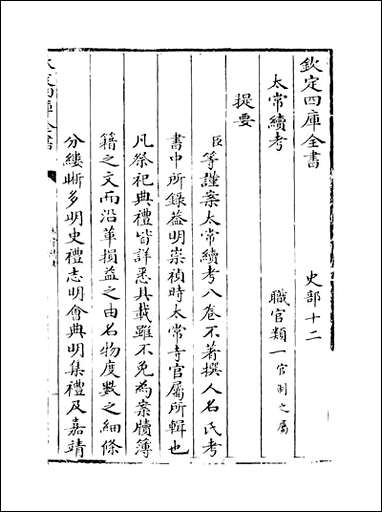 欽定四庫全書 史部十二
太常續考 職官類一官制之屬
提要
臣等謹案太常續考八卷不著撰人名氏考
書中所録葢明崇禎時太常寺官屬所輯也
凡祭祀典禮皆詳悉具載雖不免為案牘簿
籍之文而沿革損益之由名物度數之細條
分縷晰多明史禮志明會典明集禮及嘉靖